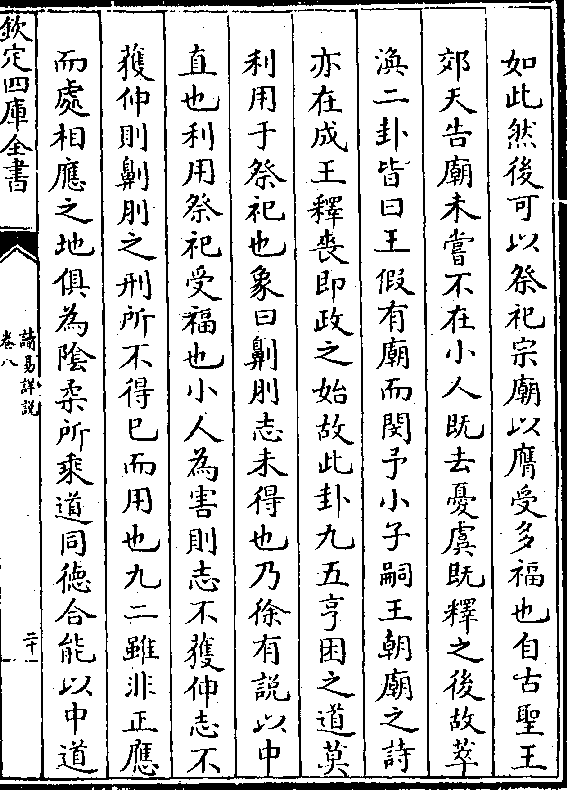 如此然後可以祭祀宗廟以膺受多福也自古聖王
郊天告廟未嘗不在小人既去憂虞既釋之後故萃
渙二卦皆曰王假有廟而閔予小子嗣王朝廟之詩
亦在成王釋喪即政之始故此卦九五亨困之道莫
利用于祭祀也象曰劓刖志未得也乃徐有說以中
直也利用祭祀受福也小人為害則志不獲伸志不
獲伸則劓刖之刑所不得已而用也九二雖非正應
而處相應之地俱為陰柔所乘道同德合能以中道
欽定四庫全書
讀易詳說
卷八
二十一